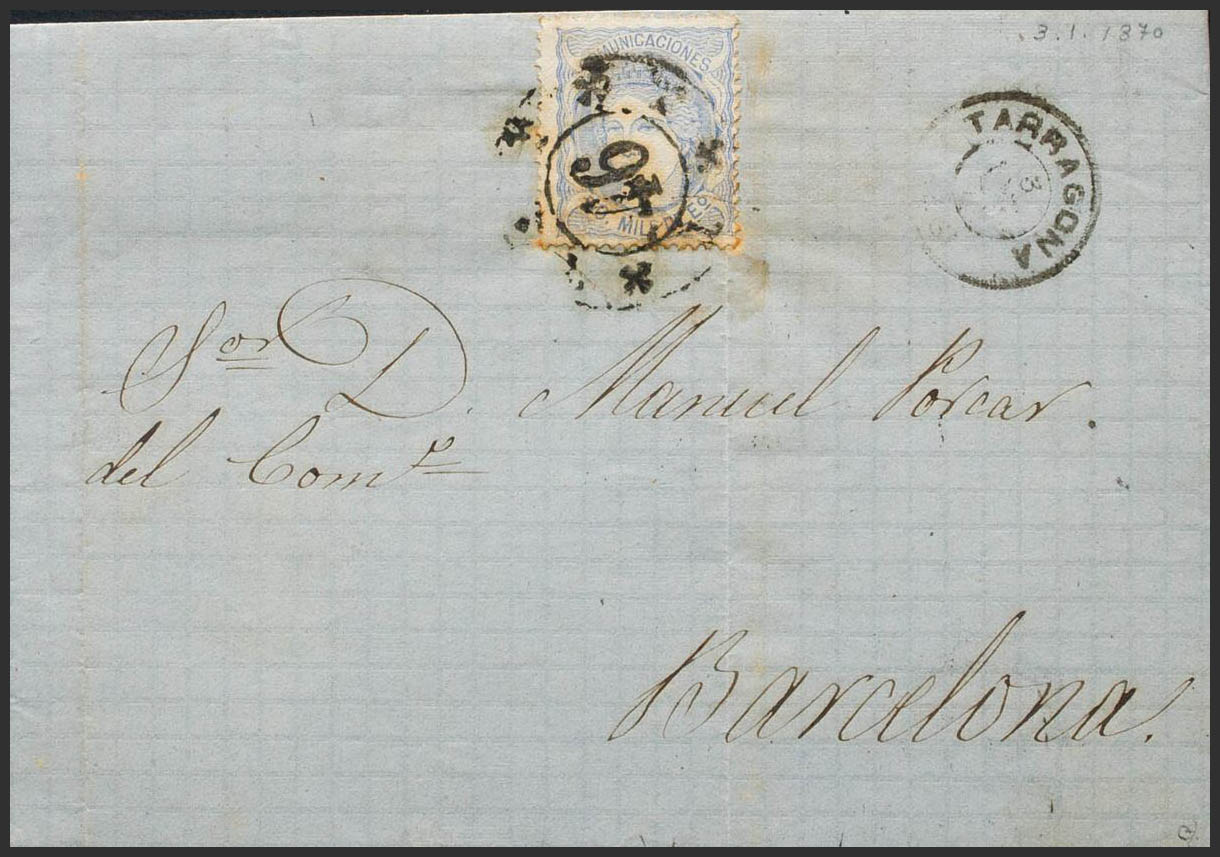 3.1.1870
COMUNICACIONES
16
MILS
TARRAGONA
3
Sor D. Manuel Porcar.
del Como
Barcelona.